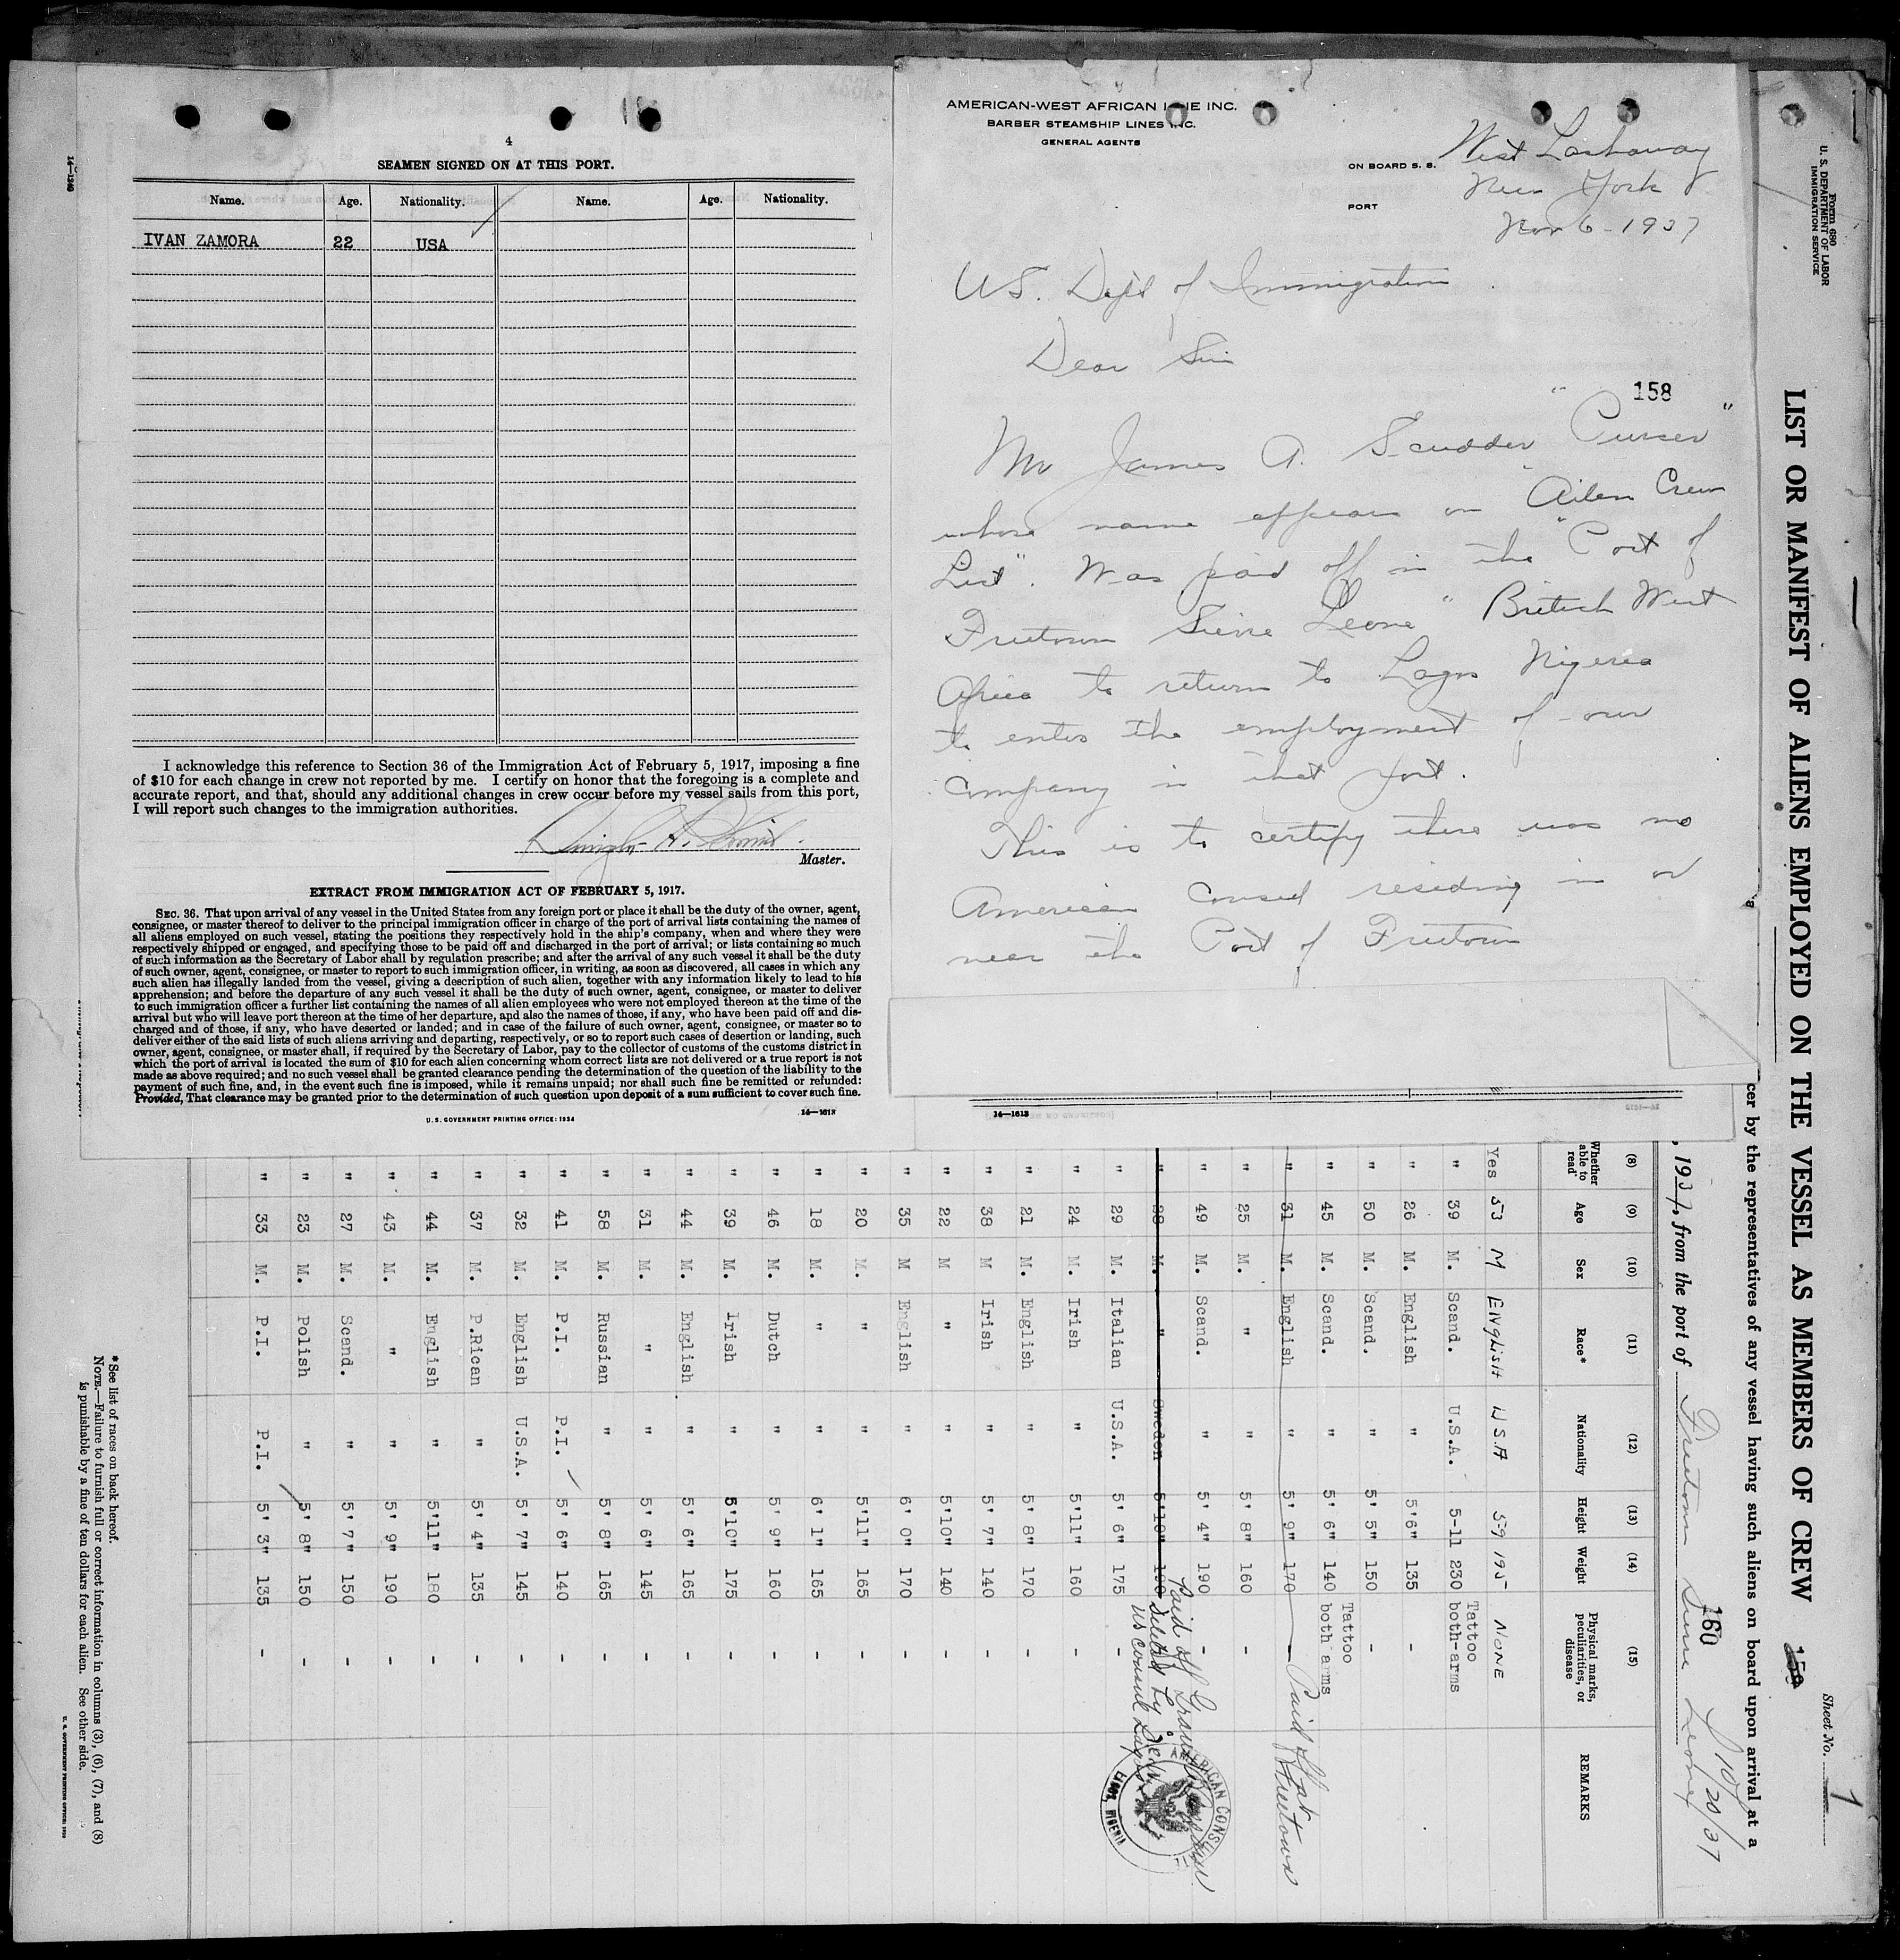 4
SEAMEN SIGNED ON AT THIS PORT.
Name. Age. Nationality. Name. Age. Nationality.
IVAN ZAMORA 22 USA
I acknowledge this reference to Section 36 of the Immigration Act of February 5, 1917, imposing a fine
of $10 for each change in crew not reported by me. I certify on honor that the foregoing is a complete and
accurate report, and that, should any additional changes in crew occur before my vessel sails from this port,
I will report such changes to the immigration authorities.
Master.
EXTRACT FROM IMMIGRATION ACT OF FEBRUARY 5, 1917.
SEC. 36. That upon arrival of any vessel in the United States from any foreign port or place it shall be the duty of the owner, agent,
consignee, or master thereof to deliver to the principal immigration officer in charge of the port of arrival lists containing the names of
all aliens employed on such vessel, stating the positions they respectively hold in the ship's company, when and where they were
respectively shipped or engaged, and specifying those to be paid off and discharged in the port of arrival; or lists containing so much
of such information as the Secretary of Labor shall by regulation prescribe; and after the arrival of any such vessel it shall be the duty
of such owner, agent, consignee, or master to report to such immigration officer, in writing, as soon as discovered, all cases in which any
such alien has illegally landed from the vessel, giving a description of such alien, together with any information likely to lead to his
apprehension; and before the departure of any such vessel it shall be the duty of such owner, agent, consignee, or master to deliver
to such immigration officer a further list containing the names of all alien employees who were not employed thereon at the time of the
arrival but who will leave port thereon at the time of her departure, and also the names of those, if any, who have been paid off and dis-
charged and of those, if any, who have deserted or landed; and in case of the failure of such owner, agent, consignee, or master so to
deliver either of the said lists of such aliens arriving and departing, respectively, or so to report such cases of desertion or landing, such
owner, agent, consignee, or master shall, if required by the Secretary of Labor, pay to the collector of customs of the customs district in
which the port of arrival is located the sum of $10 for each alien concerning whom correct lists are not delivered or a true report is not
made as above required; and no such vessel shall be granted clearance pending the determination of the question of the liability to the
payment of such fine, and, in the event such fine is imposed, while it remains unpaid; nor shall such fine be remitted or refunded:
Provided, That clearance may be granted prior to the determination of such question upon deposit of a sum sufficient to cover such fine.
U.S. GOVERNMENT PRINTING OFFICE: 1934 14—1613
14—1240
AMERICAN-WEST AFRICAN LINE INC.
BARBER STEAMSHIP LINES INC.
GENERAL AGENTS
ON BOARD S. S. West Lashaway
PORT New York
Nov 6 - 1937
U.S. Dept of Immigration
Dear Sir
158
Mr James A. Scudder "Purser"
whose name appears on "Ailen Crew
List". Was paid off in the "Port of
Freetown Sierre Leone" British West
Africa to return to Lagos Nigeria
to enter the employment of our
company in that port.
This is to certify there was no
American Consul residing in or
near the Port of Freetown
14—1613
Form 680
U. S. DEPARTMENT OF LABOR
IMMIGRATION SERVICE
Sheet No. 1
LIST OR MANIFEST OF ALIENS EMPLOYED ON THE VESSEL AS MEMBERS OF CREW 159
cer by the representatives of any vessel having such aliens on board upon arrival at a
160
, 1937, from the port of Freetown Sierre Leone 10/20/37
(8) (9) (10) (11) (12) (13) (14) (15)
Whether able to read Age Sex Race* Nationality Height Weight Physical marks, peculiarities, or disease REMARKS
Yes 53 M ENGLISH USA 5-9 195 NONE
" 39 M. Scand. U.S.A. 5-11 230 Tattoo both-arms
" 26 M. English " 5'6" 135 -
" 50 M. Scand. " 5' 5" 150 -
" 45 M. Scand. " 5' 6" 140 Tattoo both arms
" 31 M. English " 5' 9" 170 - Paid off at Freetown
" 25 M. " " 5' 8" 160 -
" 49 M. Scand. " 5' 4" 190 -
" 28 M. " Sweden 5'10" 190
Paid off
US Consul Lagos
AMERICAN CONSUL LAGOS, NIGERIA
" 29 M. Italian U.S.A. 5' 6" 175 -
" 24 M. Irish " 5'11" 160 -
" 21 M. English " 5' 8" 170 -
" 38 M Irish " 5' 7" 140 -
" 22 M " " 5'10" 140 -
" 35 M English " 6' 0" 170 -
" 20 M. " " 5'11" 165 -
" 18 M. " " 6' 1" 165 -
" 46 M. Dutch " 5' 9" 160 -
" 39 M. Irish " 5'10" 175 -
" 44 M. English " 5' 6" 165 -
" 31 M. " " 5' 6" 145 -
" 58 M. Russian " 5' 8" 165 -
" 41 M. P.I. P.I. 5' 6" 140 -
" 32 M. English U.S.A. 5' 7" 145 -
" 37 M. P.Rican " 5' 4" 135 -
" 44 M. English " 5'11" 180 -
" 43 M. " " 5' 9" 190 -
" 27 M. Scand. " 5' 7" 150 -
" 23 M. Polish " 5' 8" 150 -
" 33 M. P.I. P.I. 5' 3" 135 -
*See list of races on back hereof.
NOTE.—Failure to furnish full or correct information in columns (3), (6), (7), and (8)
is punishable by a fine of ten dollars for each alien. See other side.